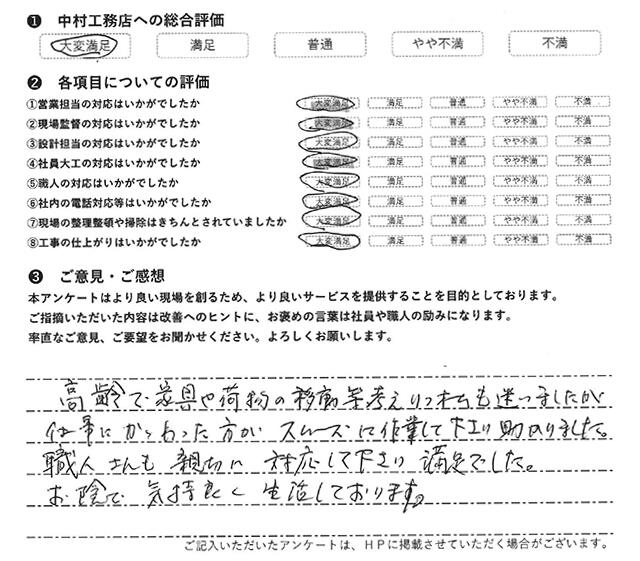 ❶ 中村工務店への総合評価
大変満足 満足 普通 やや不満 不満
❷ 各項目についての評価
①営業担当の対応はいかがでしたか 大変満足 満足 普通 やや不満 不満
②現場監督の対応はいかがでしたか 大変満足 満足 普通 やや不満 不満
③設計担当の対応はいかがでしたか 大変満足 満足 普通 やや不満 不満
④社員大工の対応はいかがでしたか 大変満足 満足 普通 やや不満 不満
⑤職人の対応はいかがでしたか 大変満足 満足 普通 やや不満 不満
⑥社内の電話対応等はいかがでしたか 大変満足 満足 普通 やや不満 不満
⑦現場の整理整頓や掃除はきちんとされていましたか 大変満足 満足 普通 やや不満 不満
⑧工事の仕上がりはいかがでしたか 大変満足 満足 普通 やや不満 不満
❸ ご意見・ご感想
本アンケートはより良い現場を創るため、より良いサービスを提供することを目的としております。
ご指摘いただいた内容は改善へのヒントに、お褒めの言葉は社員や職人の励みになります。
率直なご意見、ご要望をお聞かせください。よろしくお願いします。
高齢で家具や荷物の移動等考え とても迷いましたが
仕事にかかわった方が スムーズに作業して下さり助かりました。
職人さんも 親切に 対応して下さり 満足でした。
お陰で 気持良く 生活しております。
ご記入いただいたアンケートは、HPに掲載させていただく場合がございます。